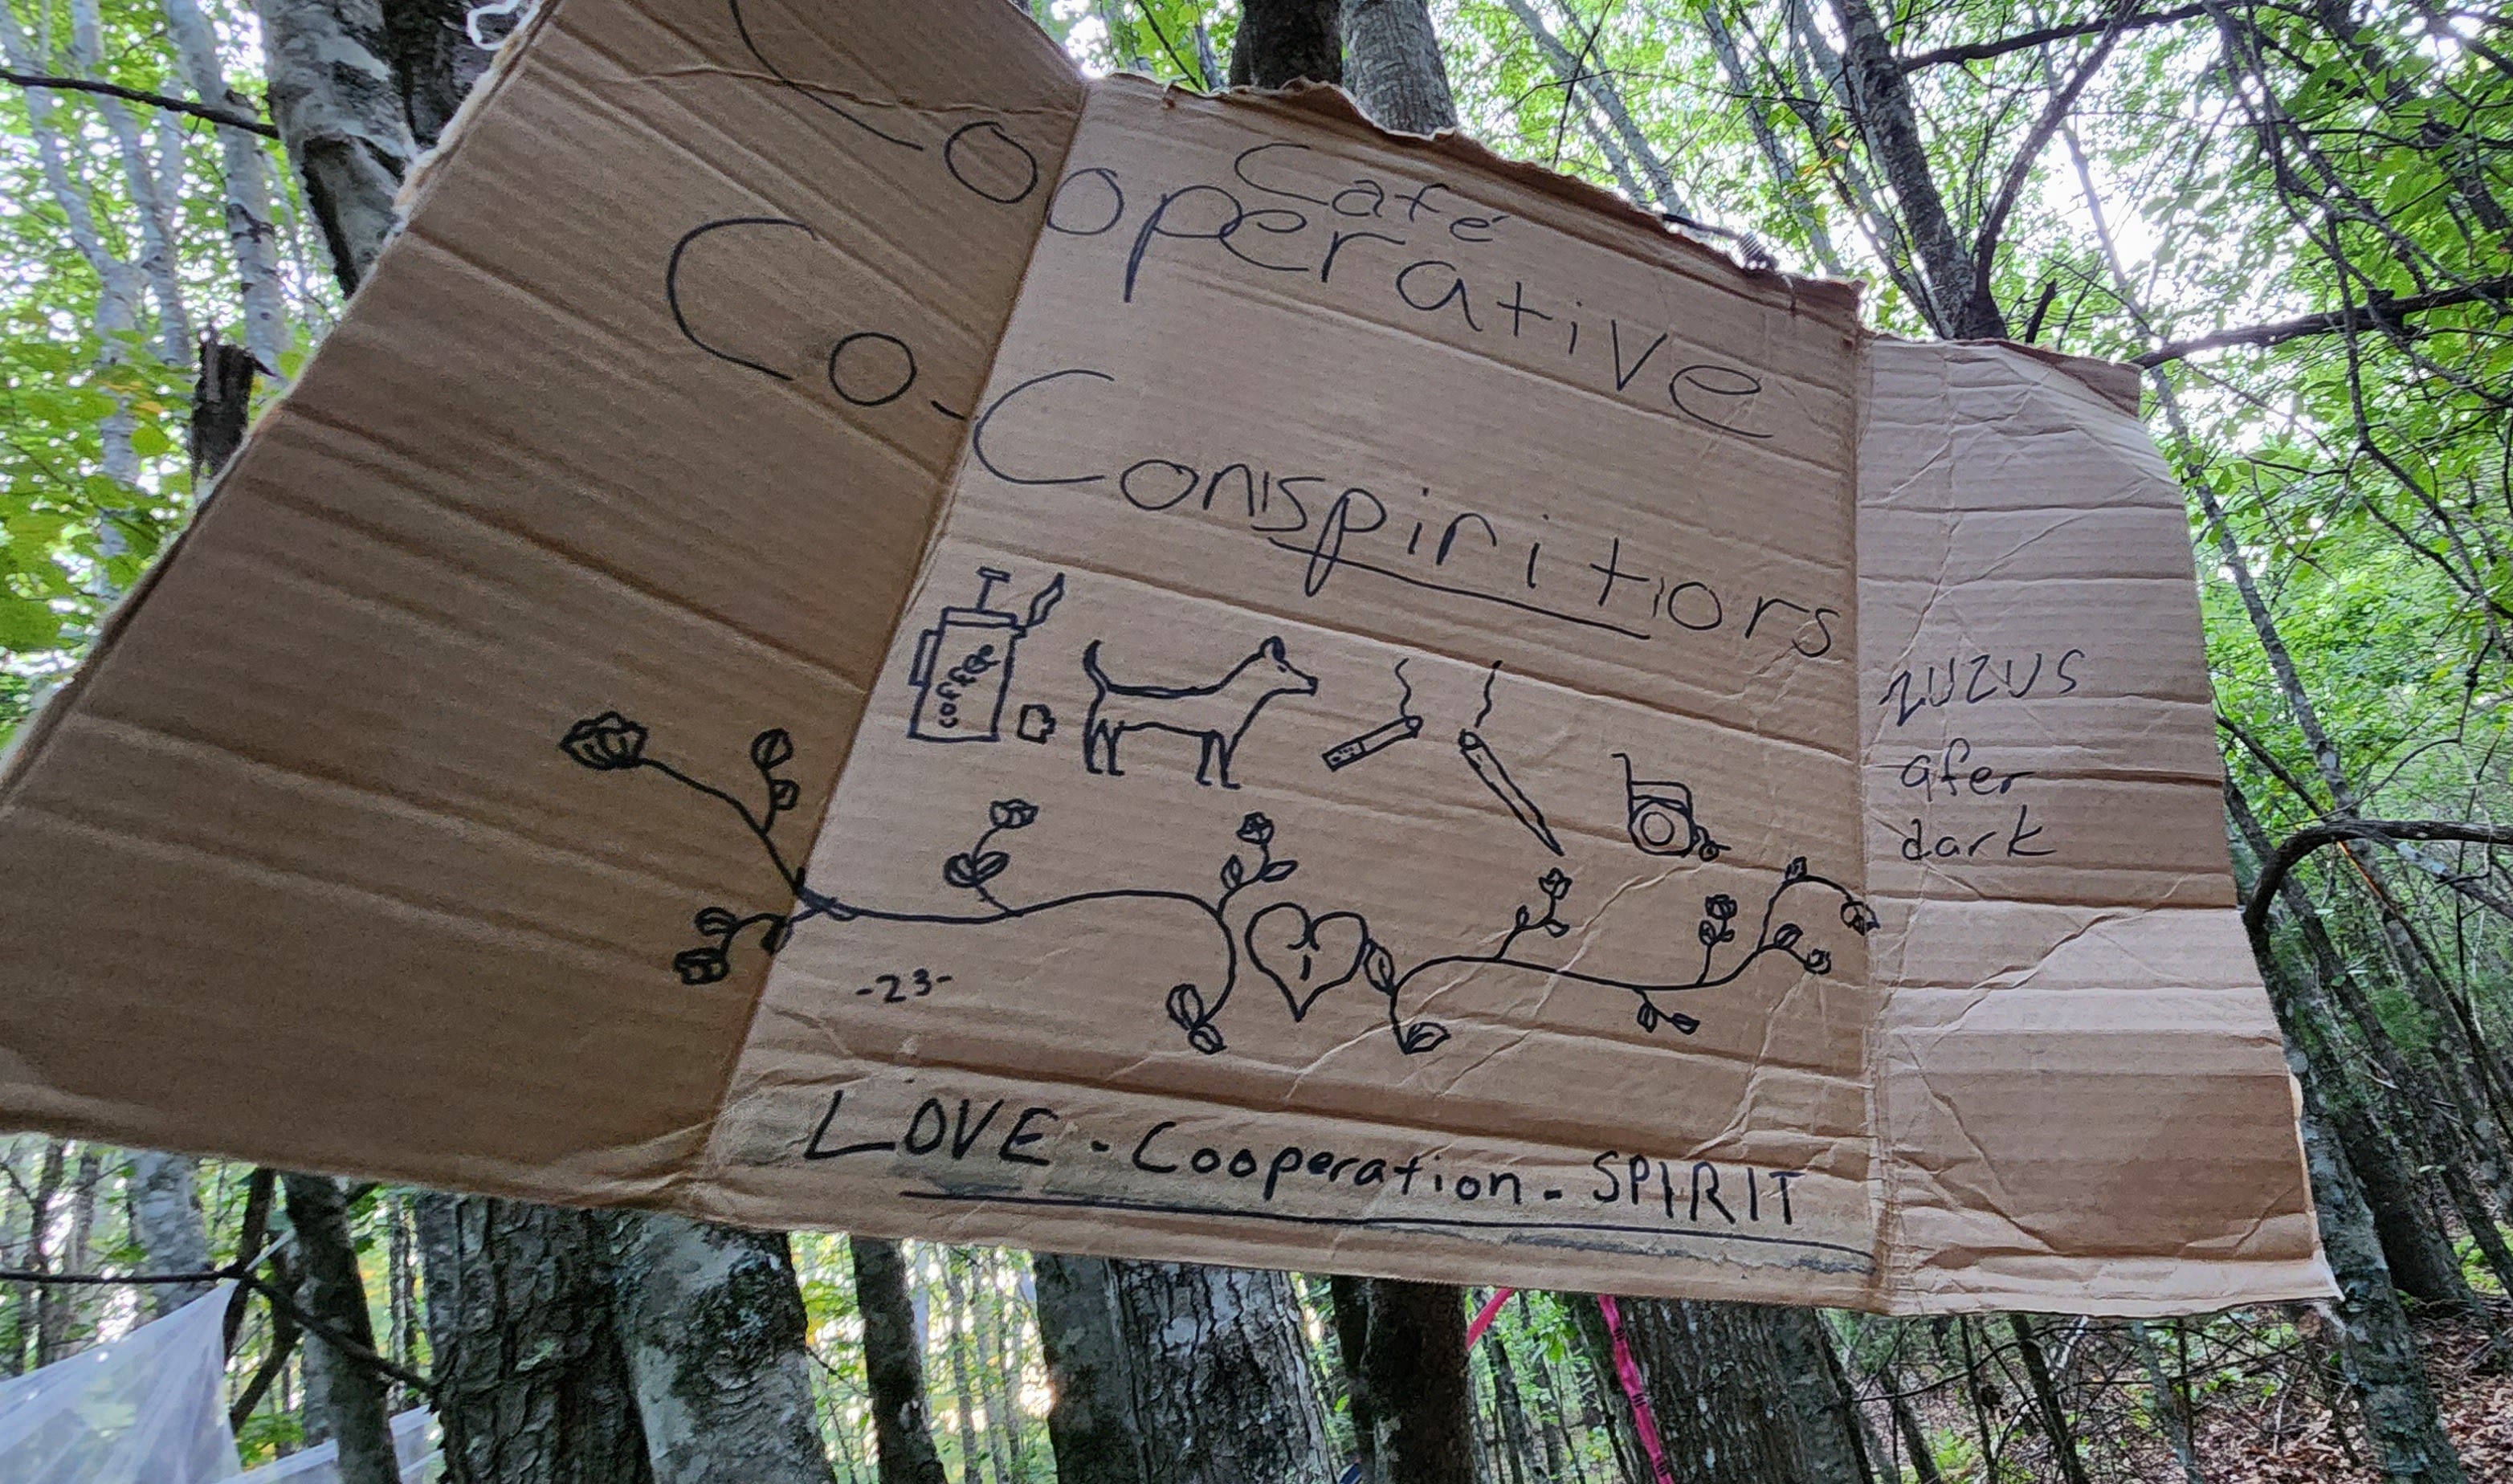 Café
Cooperative
Co-Conspiritiors
COFFEE
ZUZUS
afer
dark
-23-
LOVE - Cooperation - SPIRIT